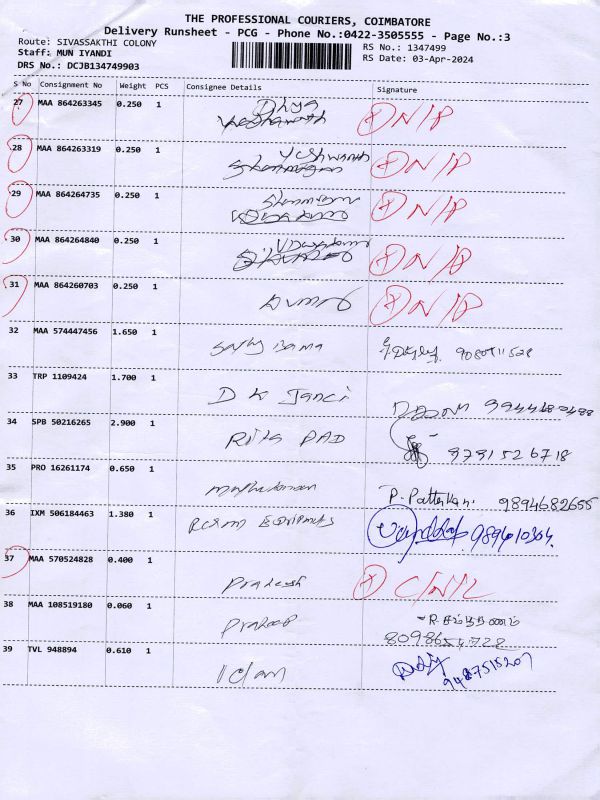 THE PROFESSIONAL COURIERS, COIMBATORE
Delivery Runsheet - PCG - Phone No.:0422-3505555 - Page No.:3
Route: SIVASSAKTHI COLONY RS No.: 1347499
Staff: MUN IYANDI RS Date: 03-Apr-2024
DRS No.: DCJB134749903
S No Consignment No Weight PCS Consignee Details Signature
27 MAA 864263345 0.250 1 Dhya N/P
28 MAA 864263319 0.250 1 Yeshwanth N/P
29 MAA 864264735 0.250 1 N/P
30 MAA 864264840 0.250 1 N/P
31 MAA 864260703 0.250 1 N/P
32 MAA 574447456 1.650 1 Sathy Bama
33 TRP 1109424 1.700 1 D K Janci
34 SPB 50216265 2.900 1 Rita PAD 9791526718
35 PRO 16261174 0.650 1 P. Pattukani 9894682655
36 IXM 506184463 1.380 1
37 MAA 570524828 0.400 1 Prakesh C/N/L
38 MAA 108519180 0.060 1 Pradeep
39 TVL 948894 0.610 1 9487515207